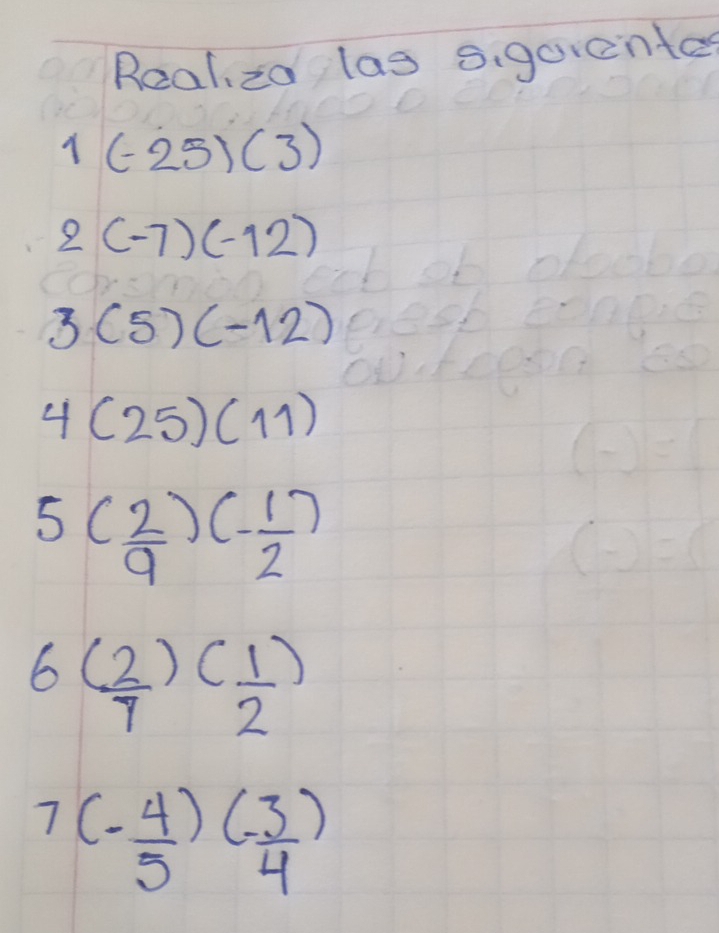 Realiza las siguientes
1 (-25)(3)
2 (-7)(-12)
3 (5)(-12)
4 (25)(11)
5 (2/9)(-1/2)
6 (2/7)(1/2)
7 (-4/5)(-3/4)